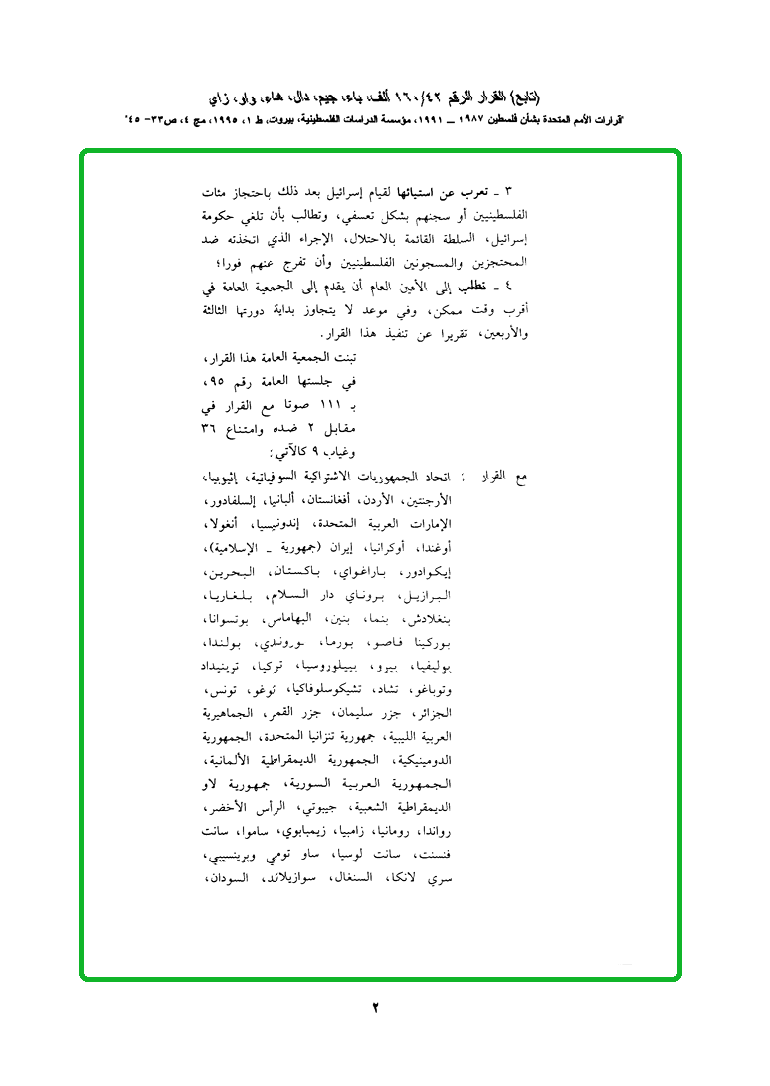 (تابع) القرار الرقم ١٦٠/٤٢ ألف، باء، جيم، دال، هاء، واو، زاي
"قرارات الأمم المتحدة بشأن فلسطين ١٩٨٧ ــ ١٩٩١، مؤسسة الدراسات الفلسطينية، بيروت، ط ١، ١٩٩٥، مج ٤، ص٣٣- ٤٥"
٣ ـ تعرب عن استيائها لقيام إسرائيل بعد ذلك باحتجاز مئات
الفلسطينيين أو سجنهم بشكل تعسفي، وتطالب بأن تلغي حكومة
إسرائيل، السلطة القائمة بالاحتلال، الإجراء الذي اتخذته ضد
المحتجزين والمسجونين الفلسطينيين وأن تفرج عنهم فورا؛
٤ ـ تطلب إلى الأمين العام أن يقدم إلى الجمعية العامة في
أقرب وقت ممكن، وفي موعد لا يتجاوز بداية دورتها الثالثة
والأربعين، تقريرا عن تنفيذ هذا القرار.
تبنت الجمعية العامة هذا القرار،
في جلستها العامة رقم ٩٥،
بـ ١١١ صوتا مع القرار في
مقابل ٢ ضده وامتناع ٣٦
وغياب ٩ كالآتي:
مع القرار : اتحاد الجمهوريات الاشتراكية السوفياتية، إثيوبيا،
الأرجنتين، الأردن، أفغانستان، ألبانيا، إلسلفادور،
الإمارات العربية المتحدة، إندونيسيا، أنغولا،
أوغندا، أوكرانيا، إيران (جمهورية ـ الإسلامية)،
إيكوادور، باراغواي، باكستان، البحرين،
البرازيل، بروناي دار السلام، بلغاريا،
بنغلادش، بنما، بنين، البهاماس، بوتسوانا،
بوركينا فاصو، بورما، بوروندي، بولندا،
بوليفيا، بيرو، بييلوروسيا، تركيا، ترينيداد
وتوباغو، تشاد، تشيكوسلوفاكيا، توغو، تونس،
الجزائر، جزر سليمان، جزر القمر، الجماهيرية
العربية الليبية، جمهورية تنزانيا المتحدة، الجمهورية
الدومينيكية، الجمهورية الديمقراطية الألمانية،
الجمهورية العربية السورية، جمهورية لاو
الديمقراطية الشعبية، جيبوتي، الرأس الأخضر،
رواندا، رومانيا، زامبيا، زيمبابوي، ساموا، سانت
فنسنت، سانت لوسيا، ساو تومي وبرينسيبي،
سري لانكا، السنغال، سوازيلاند، السودان،
٢